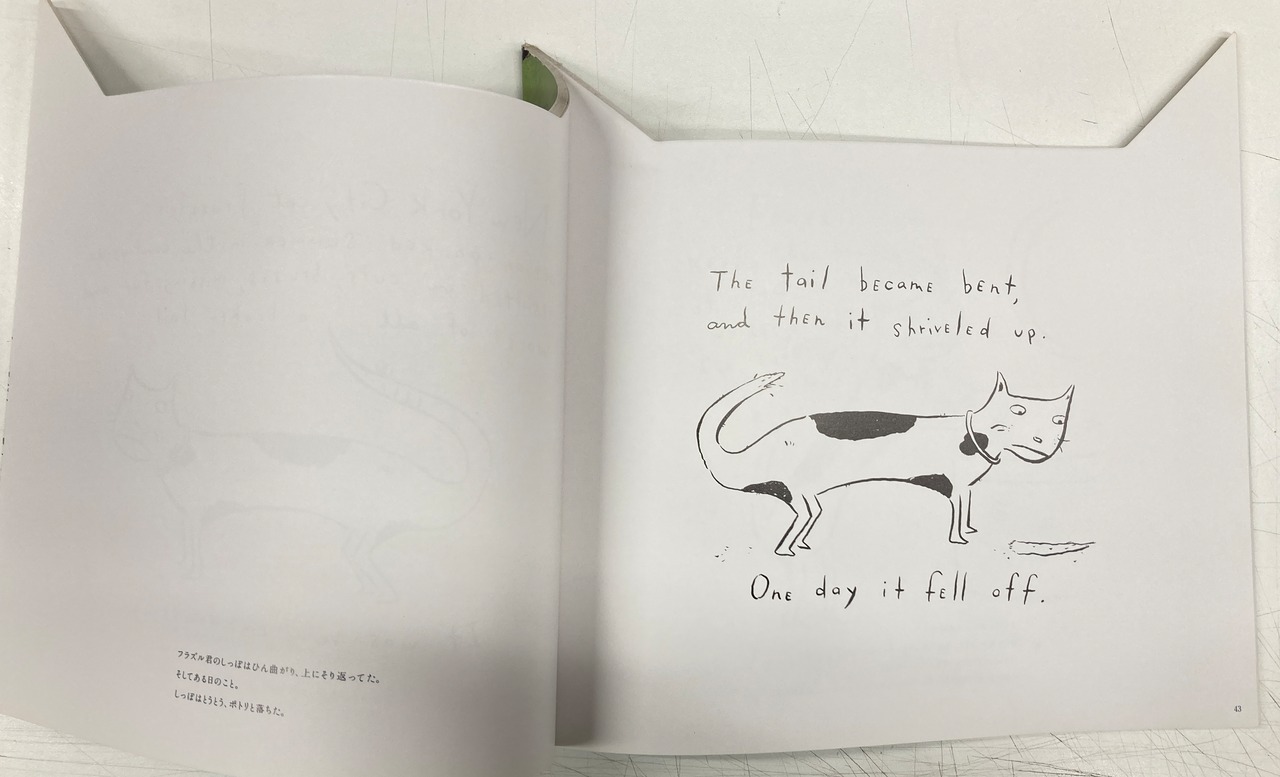 フラズル君のしっぽはひん曲がり、上にそり返ってた。
そしてある日のこと。
しっぽはとうとう、ポトリと落ちた。
The tail became bent,
and then it shriveled up.
One day it fell off.
43